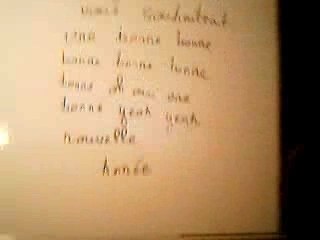 vous souhaitent
une bonne bonne
bonne bonne bonne
bonne oh oui une
bonne yeah yeah
nouvelle
Année